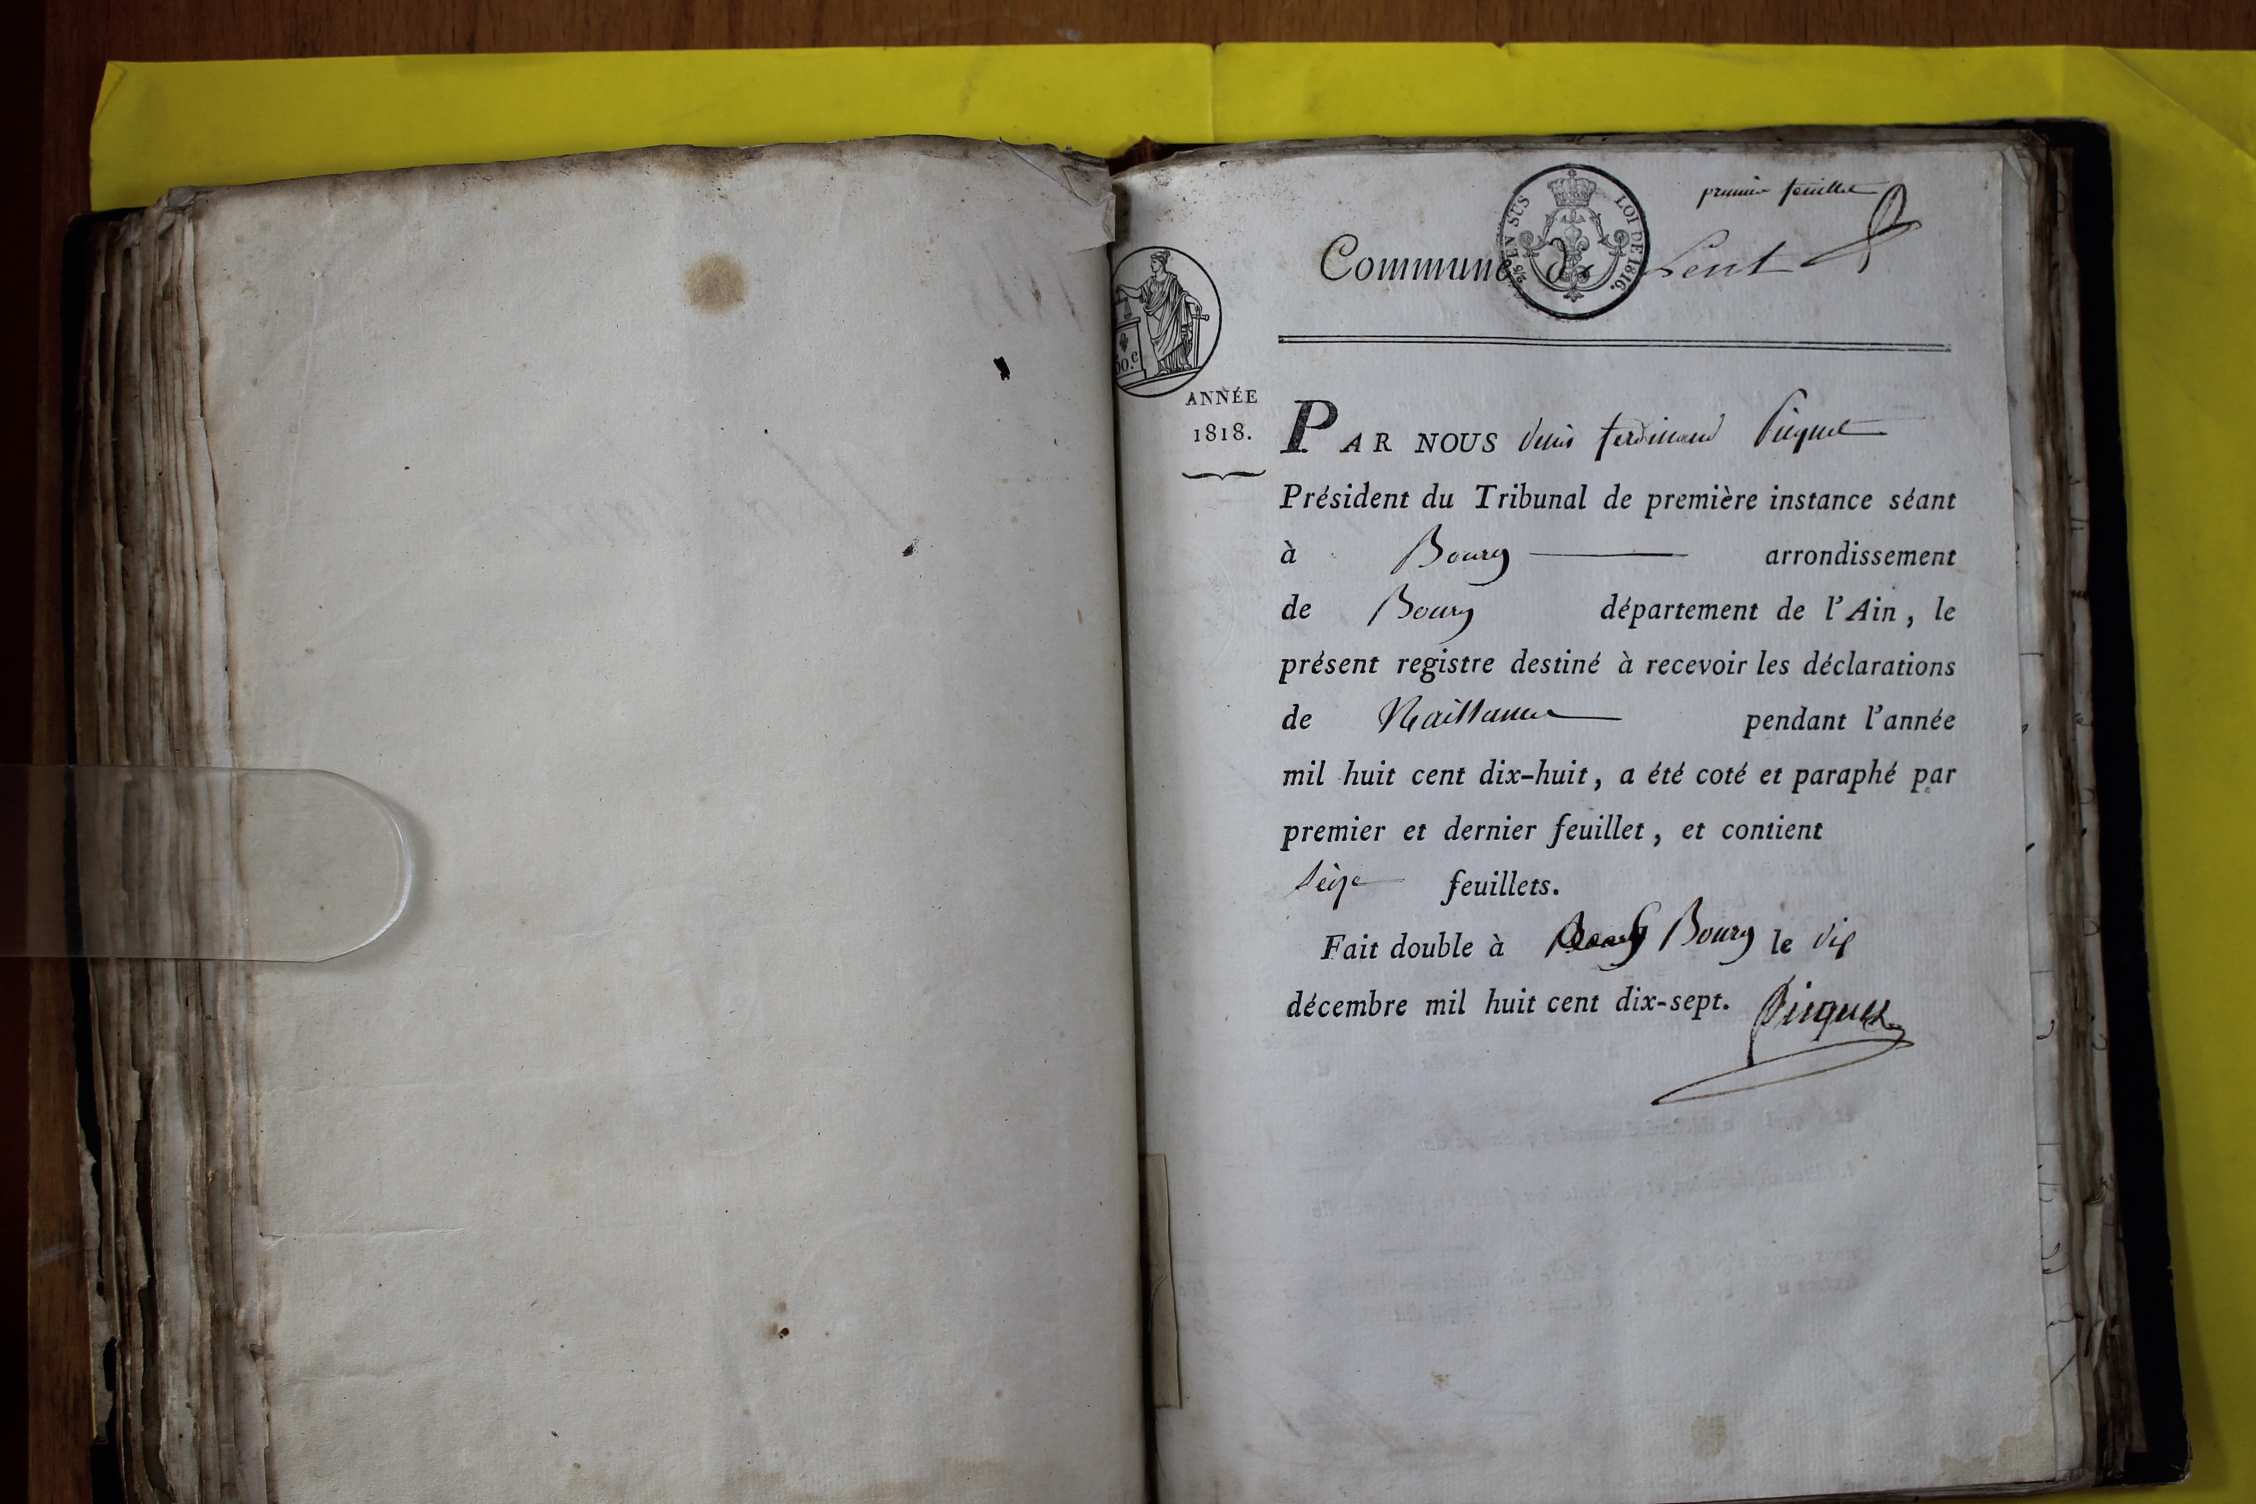 premier feuillet
2/5 EN SUS
LOI DE 1816.
Commune de Lent
50.c
ANNÉE
1818.
PAR NOUS Denis ferdinand Picquet
Président du Tribunal de première instance séant
à Bourg arrondissement
de Bourg département de l'Ain, le
présent registre destiné à recevoir les déclarations
de Naissance pendant l'année
mil huit cent dix-huit, a été coté et paraphé par
premier et dernier feuillet, et contient
seize feuillets.
Fait double à Bourg le dix
décembre mil huit cent dix-sept.
Picquet